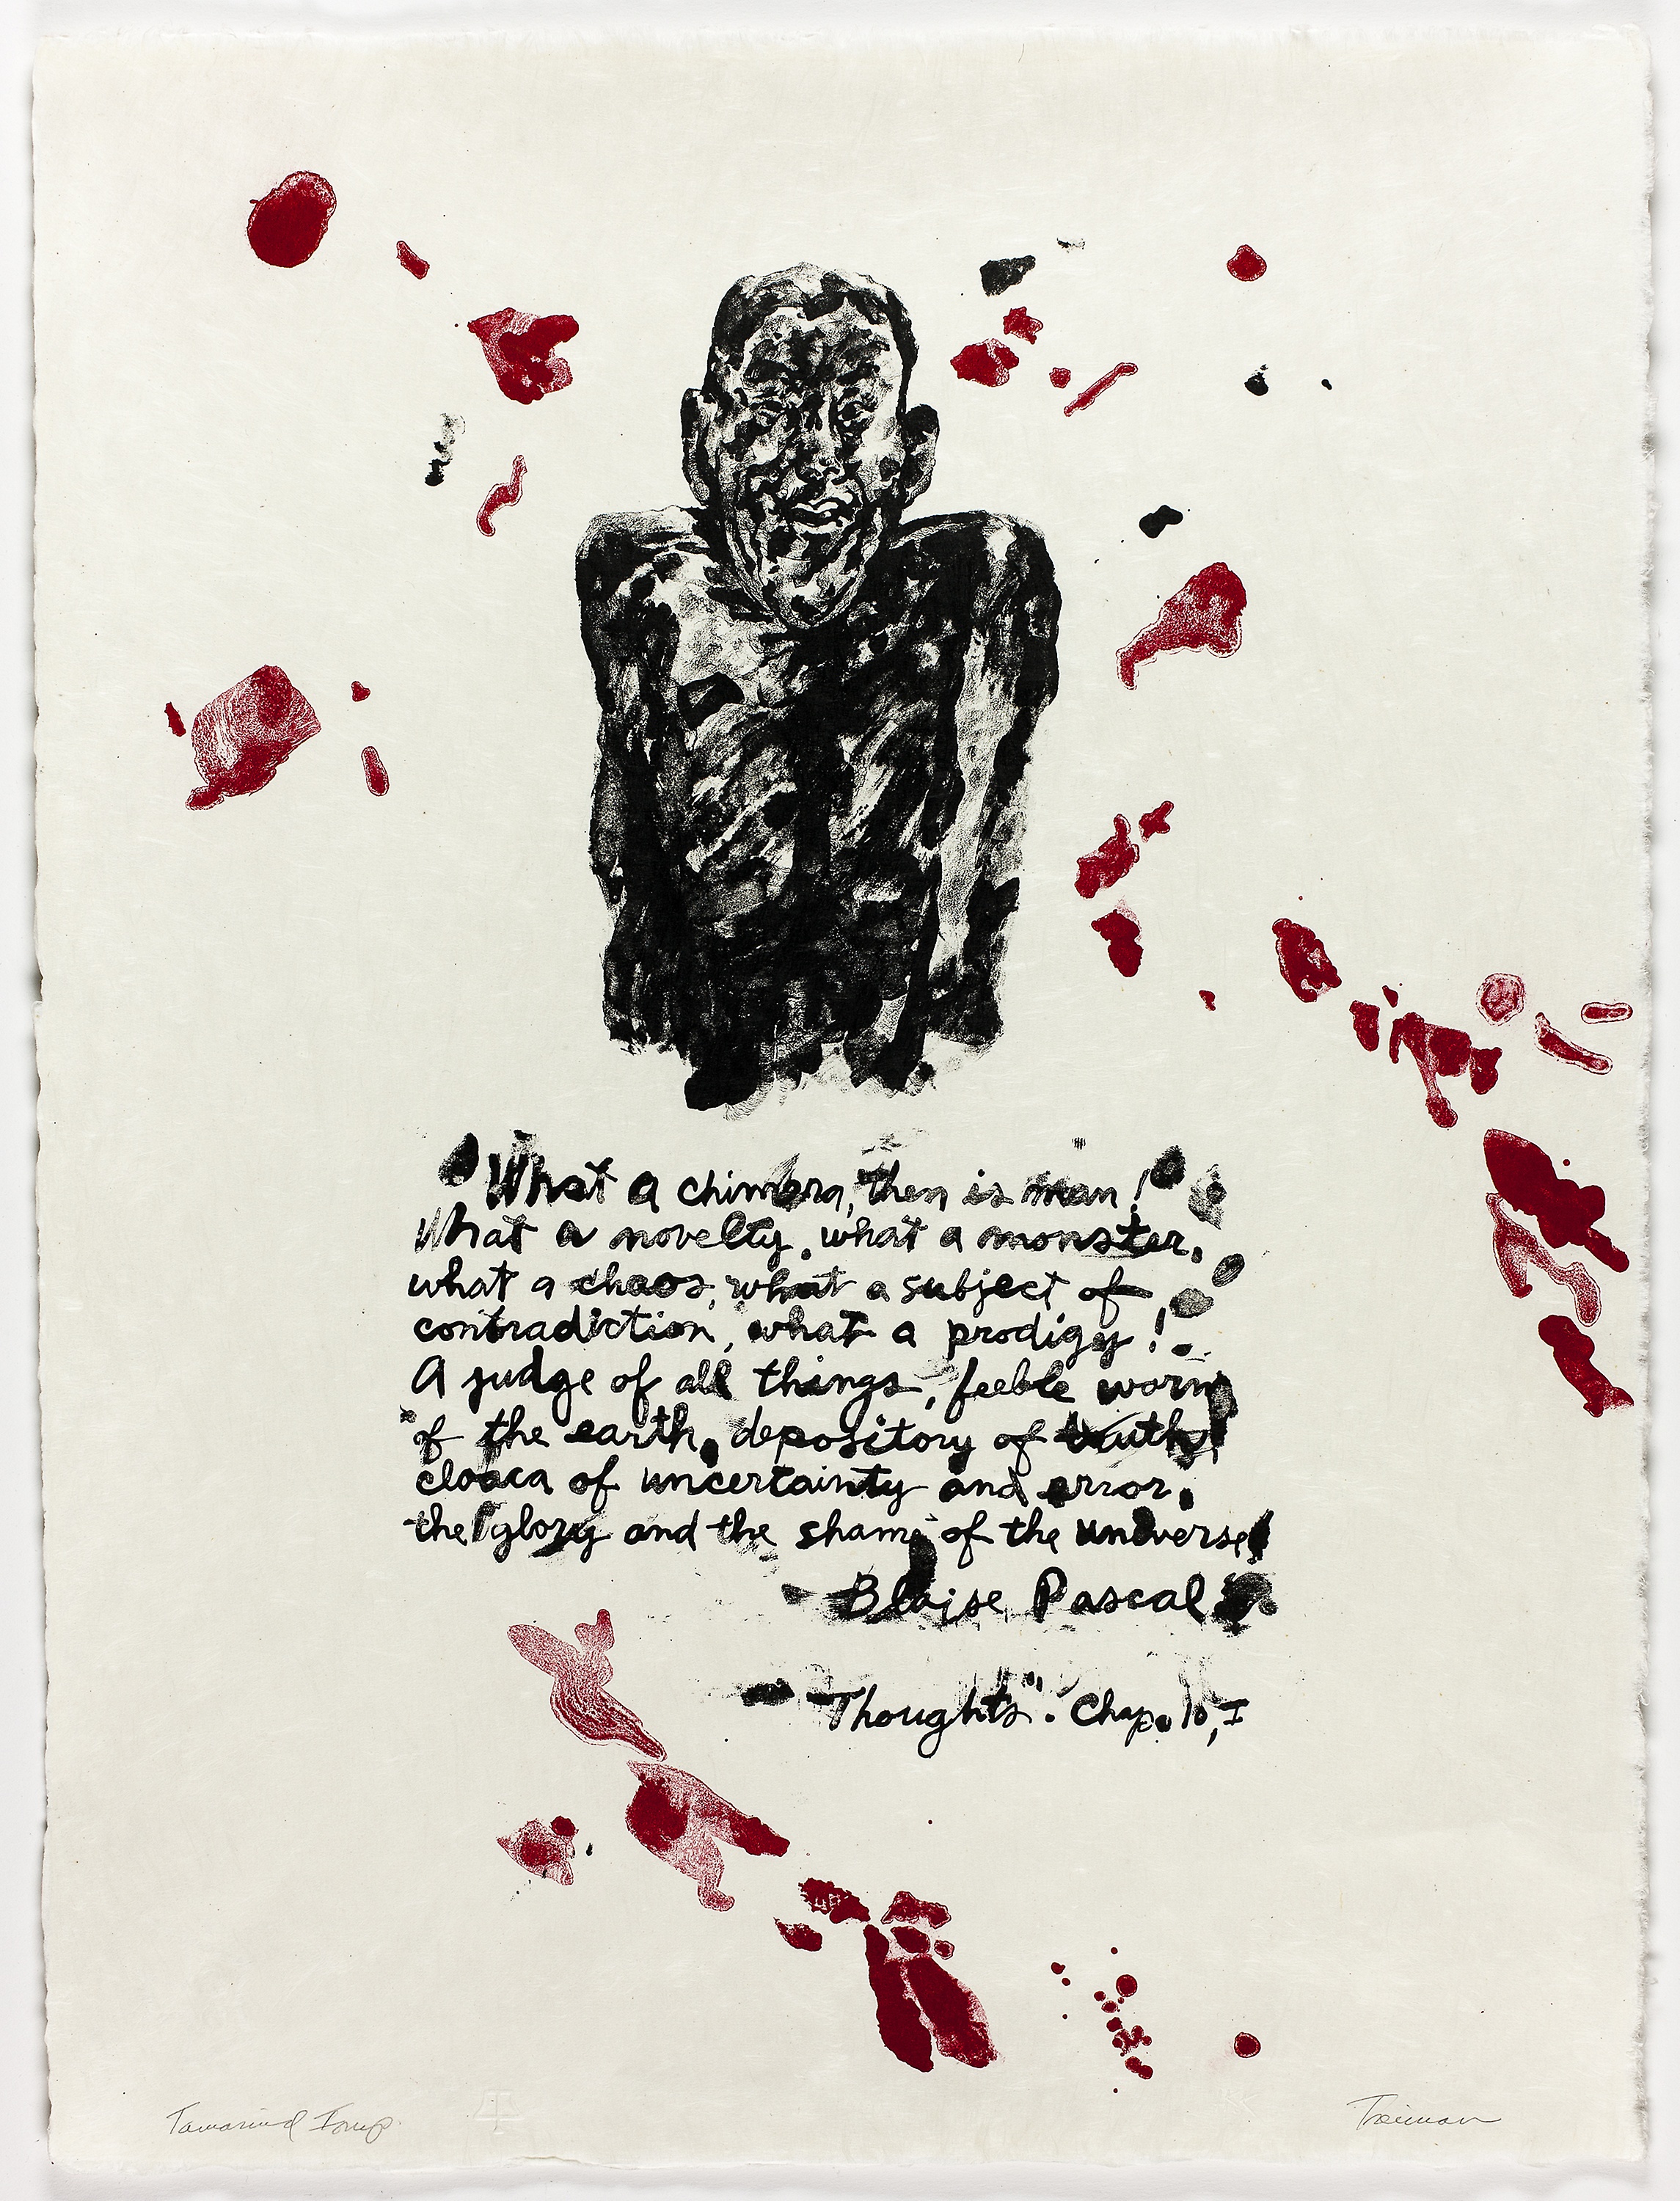 "What a chimera, then is man!"
What a novelty, what a monster,
what a chaos, what a subject of
contradiction, what a prodigy!
A judge of all things, feeble worm
of the earth, depository of truth,
cloaca of uncertainty and error,
the glory and the shame of the universe!
Blaise Pascal
"Thoughts". Chap. 10, I
Tamarind Imp. Treiman